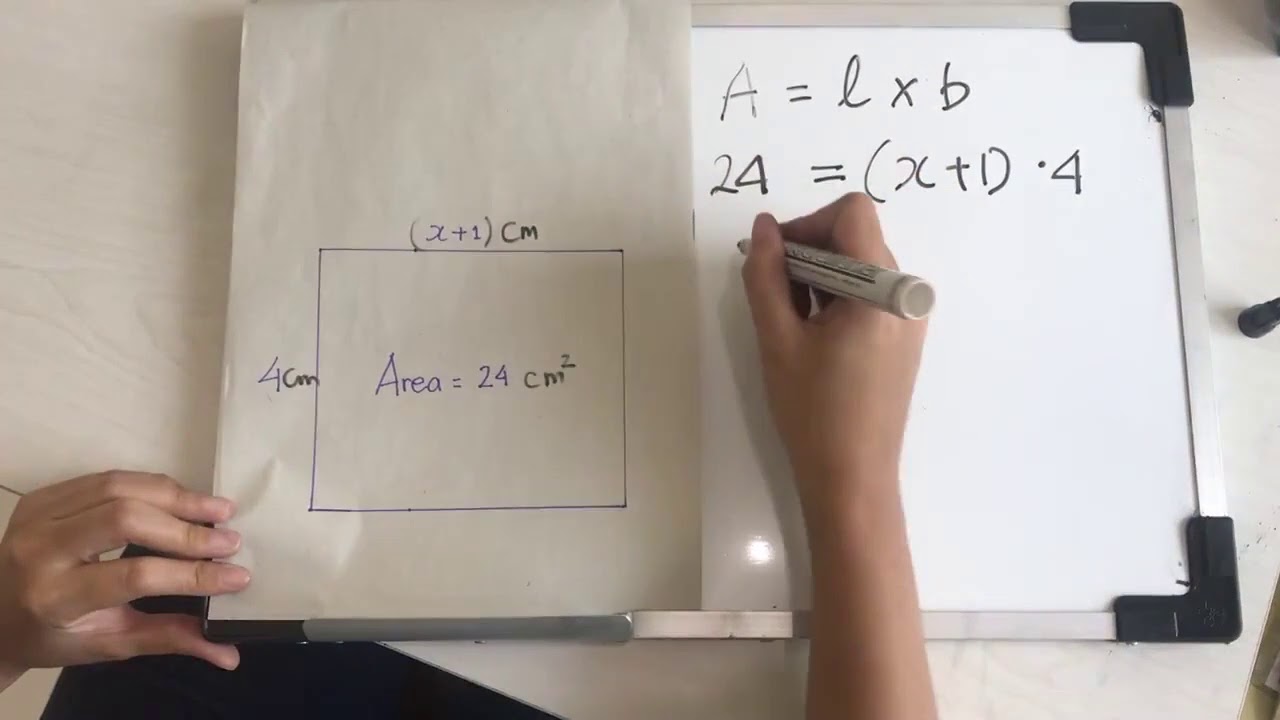 (x+1) cm
4cm
Area = 24 cm²
A = l x b
24 = (x+1) · 4